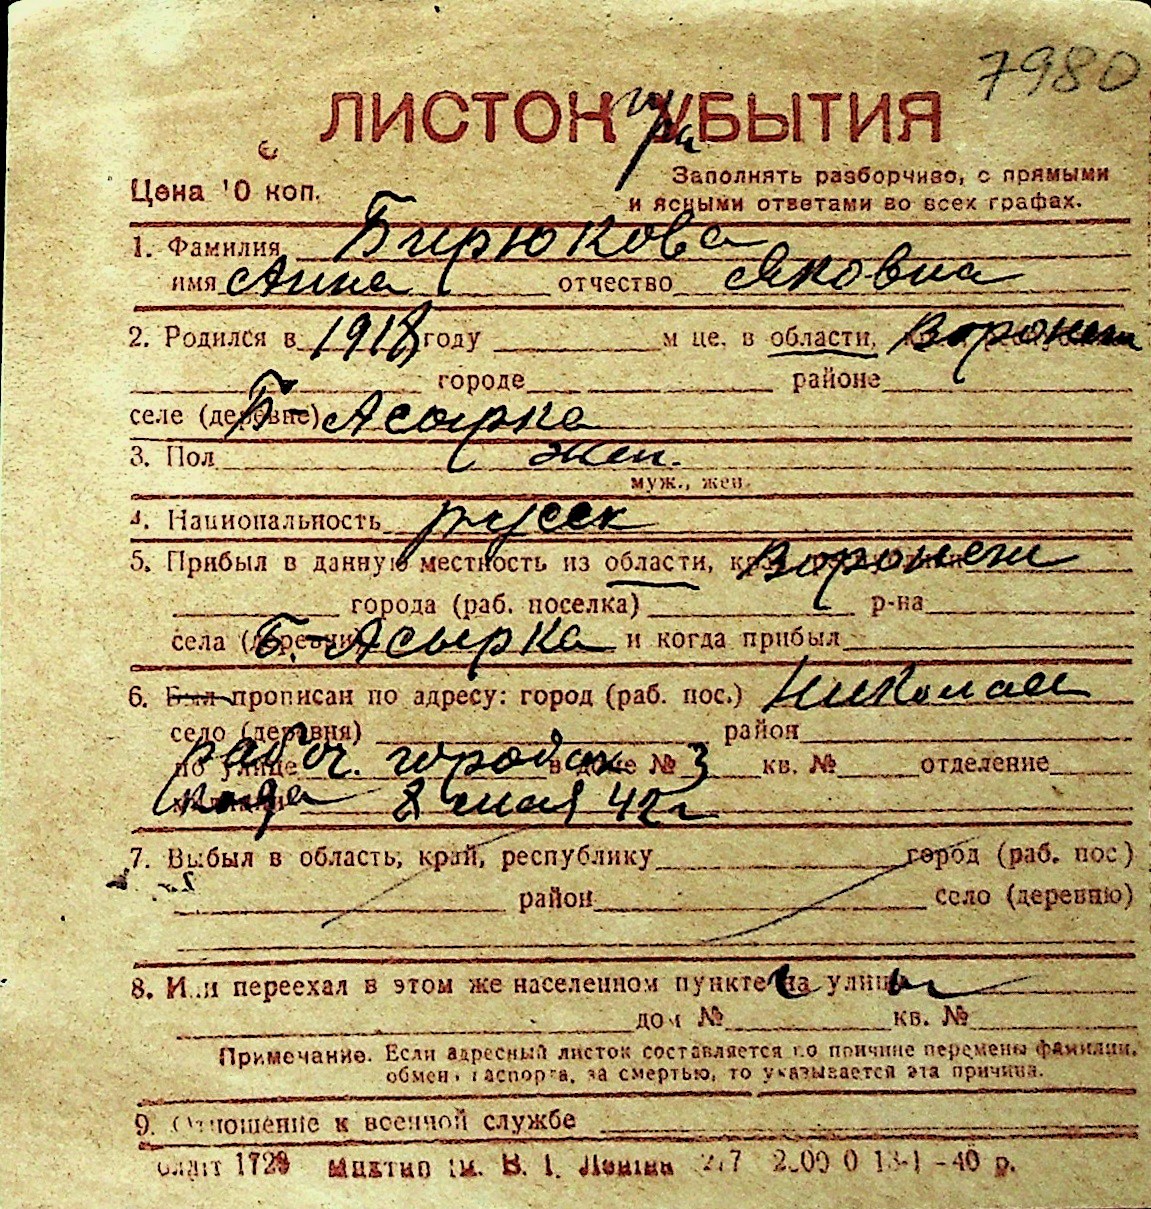 7980
ЛИСТОК УБЫТИЯ
при
Цена 10 коп.
Заполнять разборчиво, с прямыми
и ясными ответами во всех графах.
1. Фамилия Бирюкова
имя Анна отчество Яковна
2. Родился в 1918 году м-це, в области, Воронеж
городе районе
селе (деревне) Б-Асырка
3. Пол жен.
муж., жен.
4. Национальность русск
5. Прибыл в данную местность из области, Воронеж
города (раб. поселка) р-на
села (деревни) Б.-Асырка и когда прибыл
6. Был прописан по адресу: город (раб. пос.) Николаев
село (деревня) район
по улице рабоч. городок в доме № 3 кв. № отделение
милиции когда 8 мая 42 г
7. Выбыл в область, край, республику город (раб. пос)
район село (деревню)
8. Или переехал в этом же населенном пункте на улицу
дом № кв. №
Примечание. Если адресный листок составляется по причине перемены фамилии,
обмен паспорта, за смертью, то указывается эта причина.
9. Отношение к военной службе
1729 В. И. Ленина 13-1-40 р.